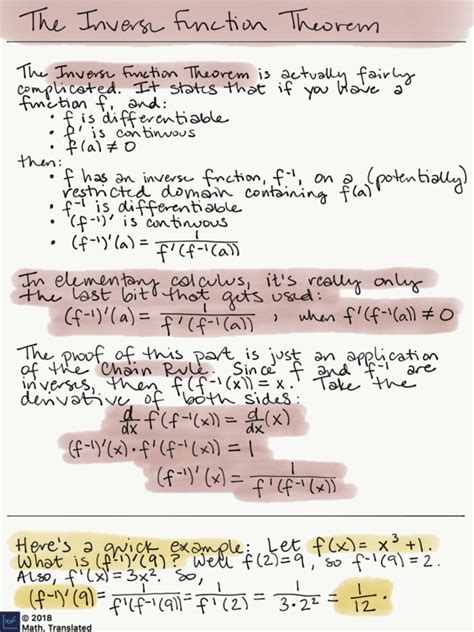 The Inverse Function Theorem
The Inverse Function Theorem is actually fairly
complicated. It states that if you have a
function f, and:
• f is differentiable
• f' is continuous
• f(a) ≠ 0
then:
• f has an inverse function, f⁻¹, on a (potentially)
restricted domain containing f(a)
• f⁻¹ is differentiable
• (f⁻¹)' is continuous
• (f⁻¹)'(a) = 1/f'(f⁻¹(a))
In elementary calculus, it's really only
the last bit that gets used:
(f⁻¹)'(a) = 1/f'(f⁻¹(a)) , when f'(f⁻¹(a)) ≠ 0
The proof of this part is just an application
of the Chain Rule. Since f and f⁻¹ are
inverses, then f(f⁻¹(x)) = x. Take the
derivative of both sides:
d/dx f(f⁻¹(x)) = d/dx (x)
(f⁻¹)'(x) · f'(f⁻¹(x)) = 1
(f⁻¹)'(x) = 1/f'(f⁻¹(x))
Here's a quick example: Let f(x) = x³ + 1.
What is (f⁻¹)'(9)? Well f(2) = 9, so f⁻¹(9) = 2.
Also, f'(x) = 3x². So,
(f⁻¹)'(9) = 1/f'(f⁻¹(9)) = 1/f'(2) = 1/3·2² = 1/12.
© 2018
Math, Translated